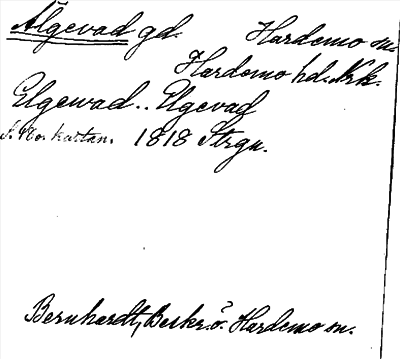 Älgevad gd. Hardemo sn.
Hardemo hd. Nrk.
Elgewad.. Elgevad
kartan. 1818 Strgn.
Bernhardt, Beskr. ö. Hardemo sn.